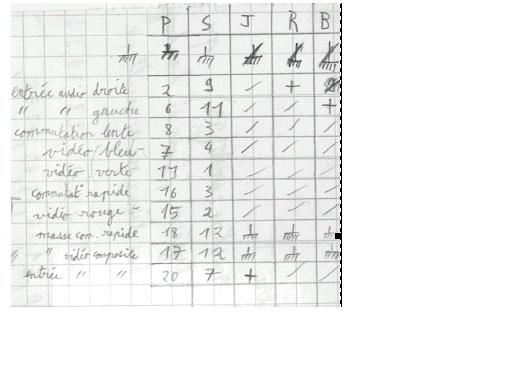 P S J R B
entrée audio droite 2 9 / +
" " gauche 6 11 / / +
commutation lente 8 3 / / /
vidéo bleu 7 4 / / /
vidéo verte 11 1 / / /
commutat° rapide 16 3 / / /
vidéo rouge 15 2 / / /
masse com. rapide 18 12
" " vidéo composite 17 12
entrée " " 20 7 + / /